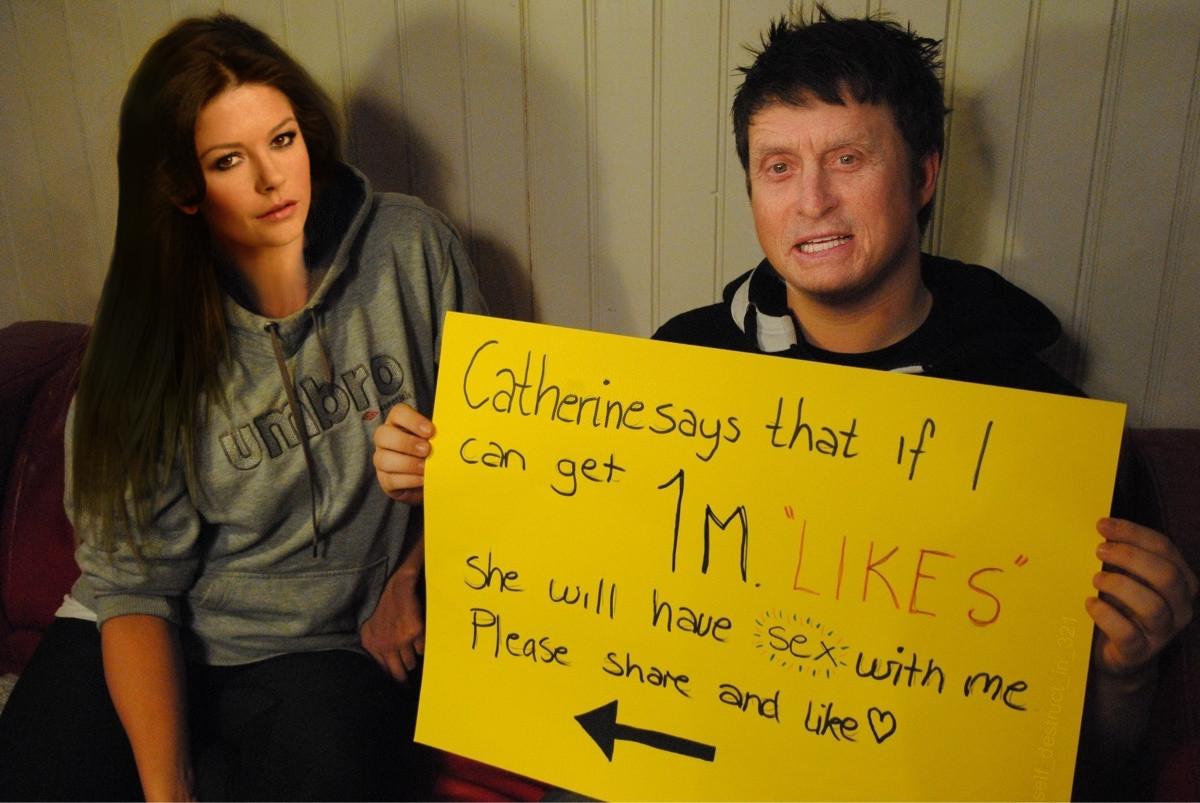 umbro
Catherine says that if I
can get 1M. "LIKES"
She will have sex with me
Please share and like♡
self_destruct_in_321